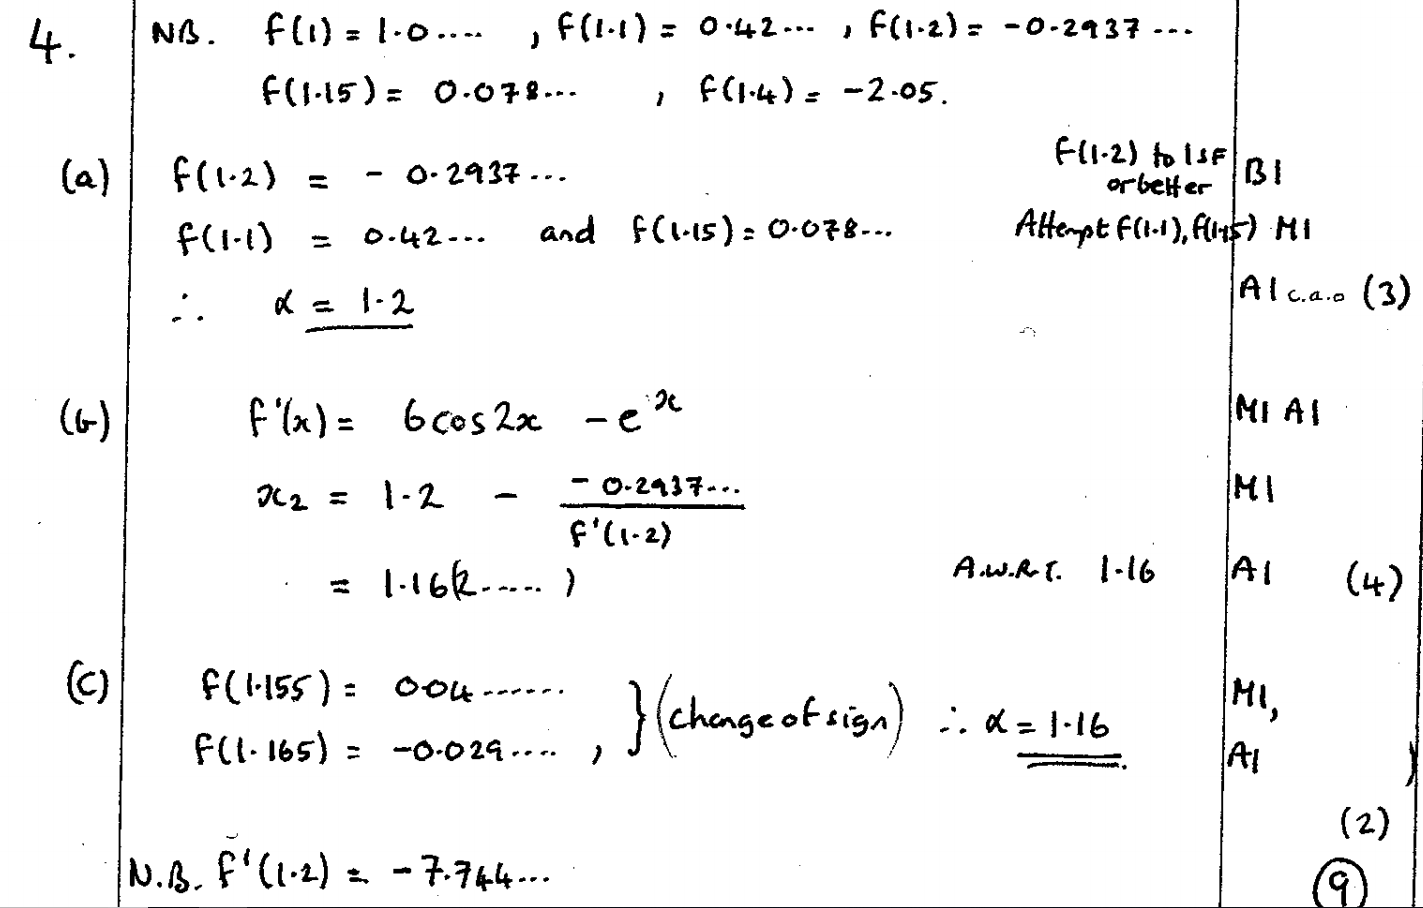 4. NB. f(1) = 1.0..... , f(1.1) = 0.42... , f(1.2) = -0.2937...
f(1.15) = 0.078... , f(1.4) = -2.05.
(a) f(1.2) = -0.2937... f(1.2) to 1SF or better B1
f(1.1) = 0.42... and f(1.15) = 0.078... Attempt f(1.1), f(1.15) M1
∴ α = 1.2 A1 c.a.o (3)
(b) f'(x) = 6cos2x - e^x M1 A1
x₂ = 1.2 - (-0.2937...)/(f'(1.2)) M1
= 1.16(2.....) A.W.R.T. 1.16 A1 (4)
(c) f(1.155) = 0.04...... } (change of sign) ∴ α = 1.16 M1,
f(1.165) = -0.029...., A1
(2)
N.B. f'(1.2) = -7.744... (9)